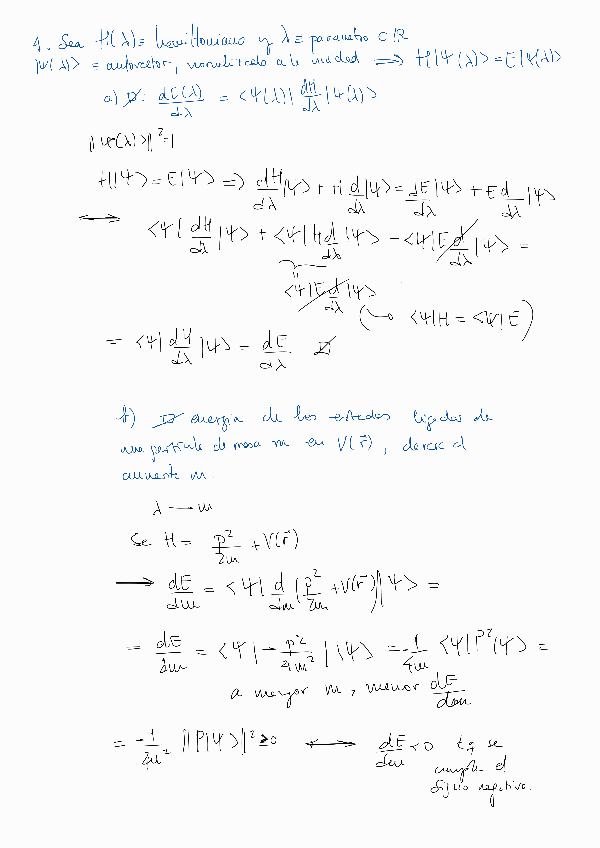 1. Sea H(λ) = hamiltoniano y λ = parametro ∈ ℝ
|Ψ(λ)> = autovector, normalizado a la unidad ⟹ H|Ψ(λ)> = E|Ψ(λ)>
a) D: dE(λ)/dλ = <Ψ(λ)| dH/dλ |Ψ(λ)>
|| |Ψ(λ)> ||² = 1
H|Ψ> = E|Ψ> ⟹ dH/dλ |Ψ> + H d/dλ |Ψ> = dE/dλ |Ψ> + E d/dλ |Ψ>
⟺ <Ψ| dH/dλ |Ψ> + <Ψ| H d/dλ |Ψ> - <Ψ| E d/dλ |Ψ> =
<Ψ| E d/dλ |Ψ>
(→ <Ψ|H = <Ψ|E)
= <Ψ| dH/dλ |Ψ> = dE/dλ
b) D energia de los estados ligados de
una particula de masa m en V(r⃗), decrece al
aumentar m.
λ → m
Se H = p²/2m + V(r⃗)
⟶ dE/dm = <Ψ| d/dm (p²/2m + V(r⃗)) |Ψ> =
= dE/dm = <Ψ| - p²/4m² |Ψ> = -1/4m <Ψ|P²|Ψ> =
a mayor m, menor dE/dm
= -1/2m² ||P|Ψ>||² ≥ 0 ⟷ dE/dm < 0 tq se
cumple el
signo negativo.